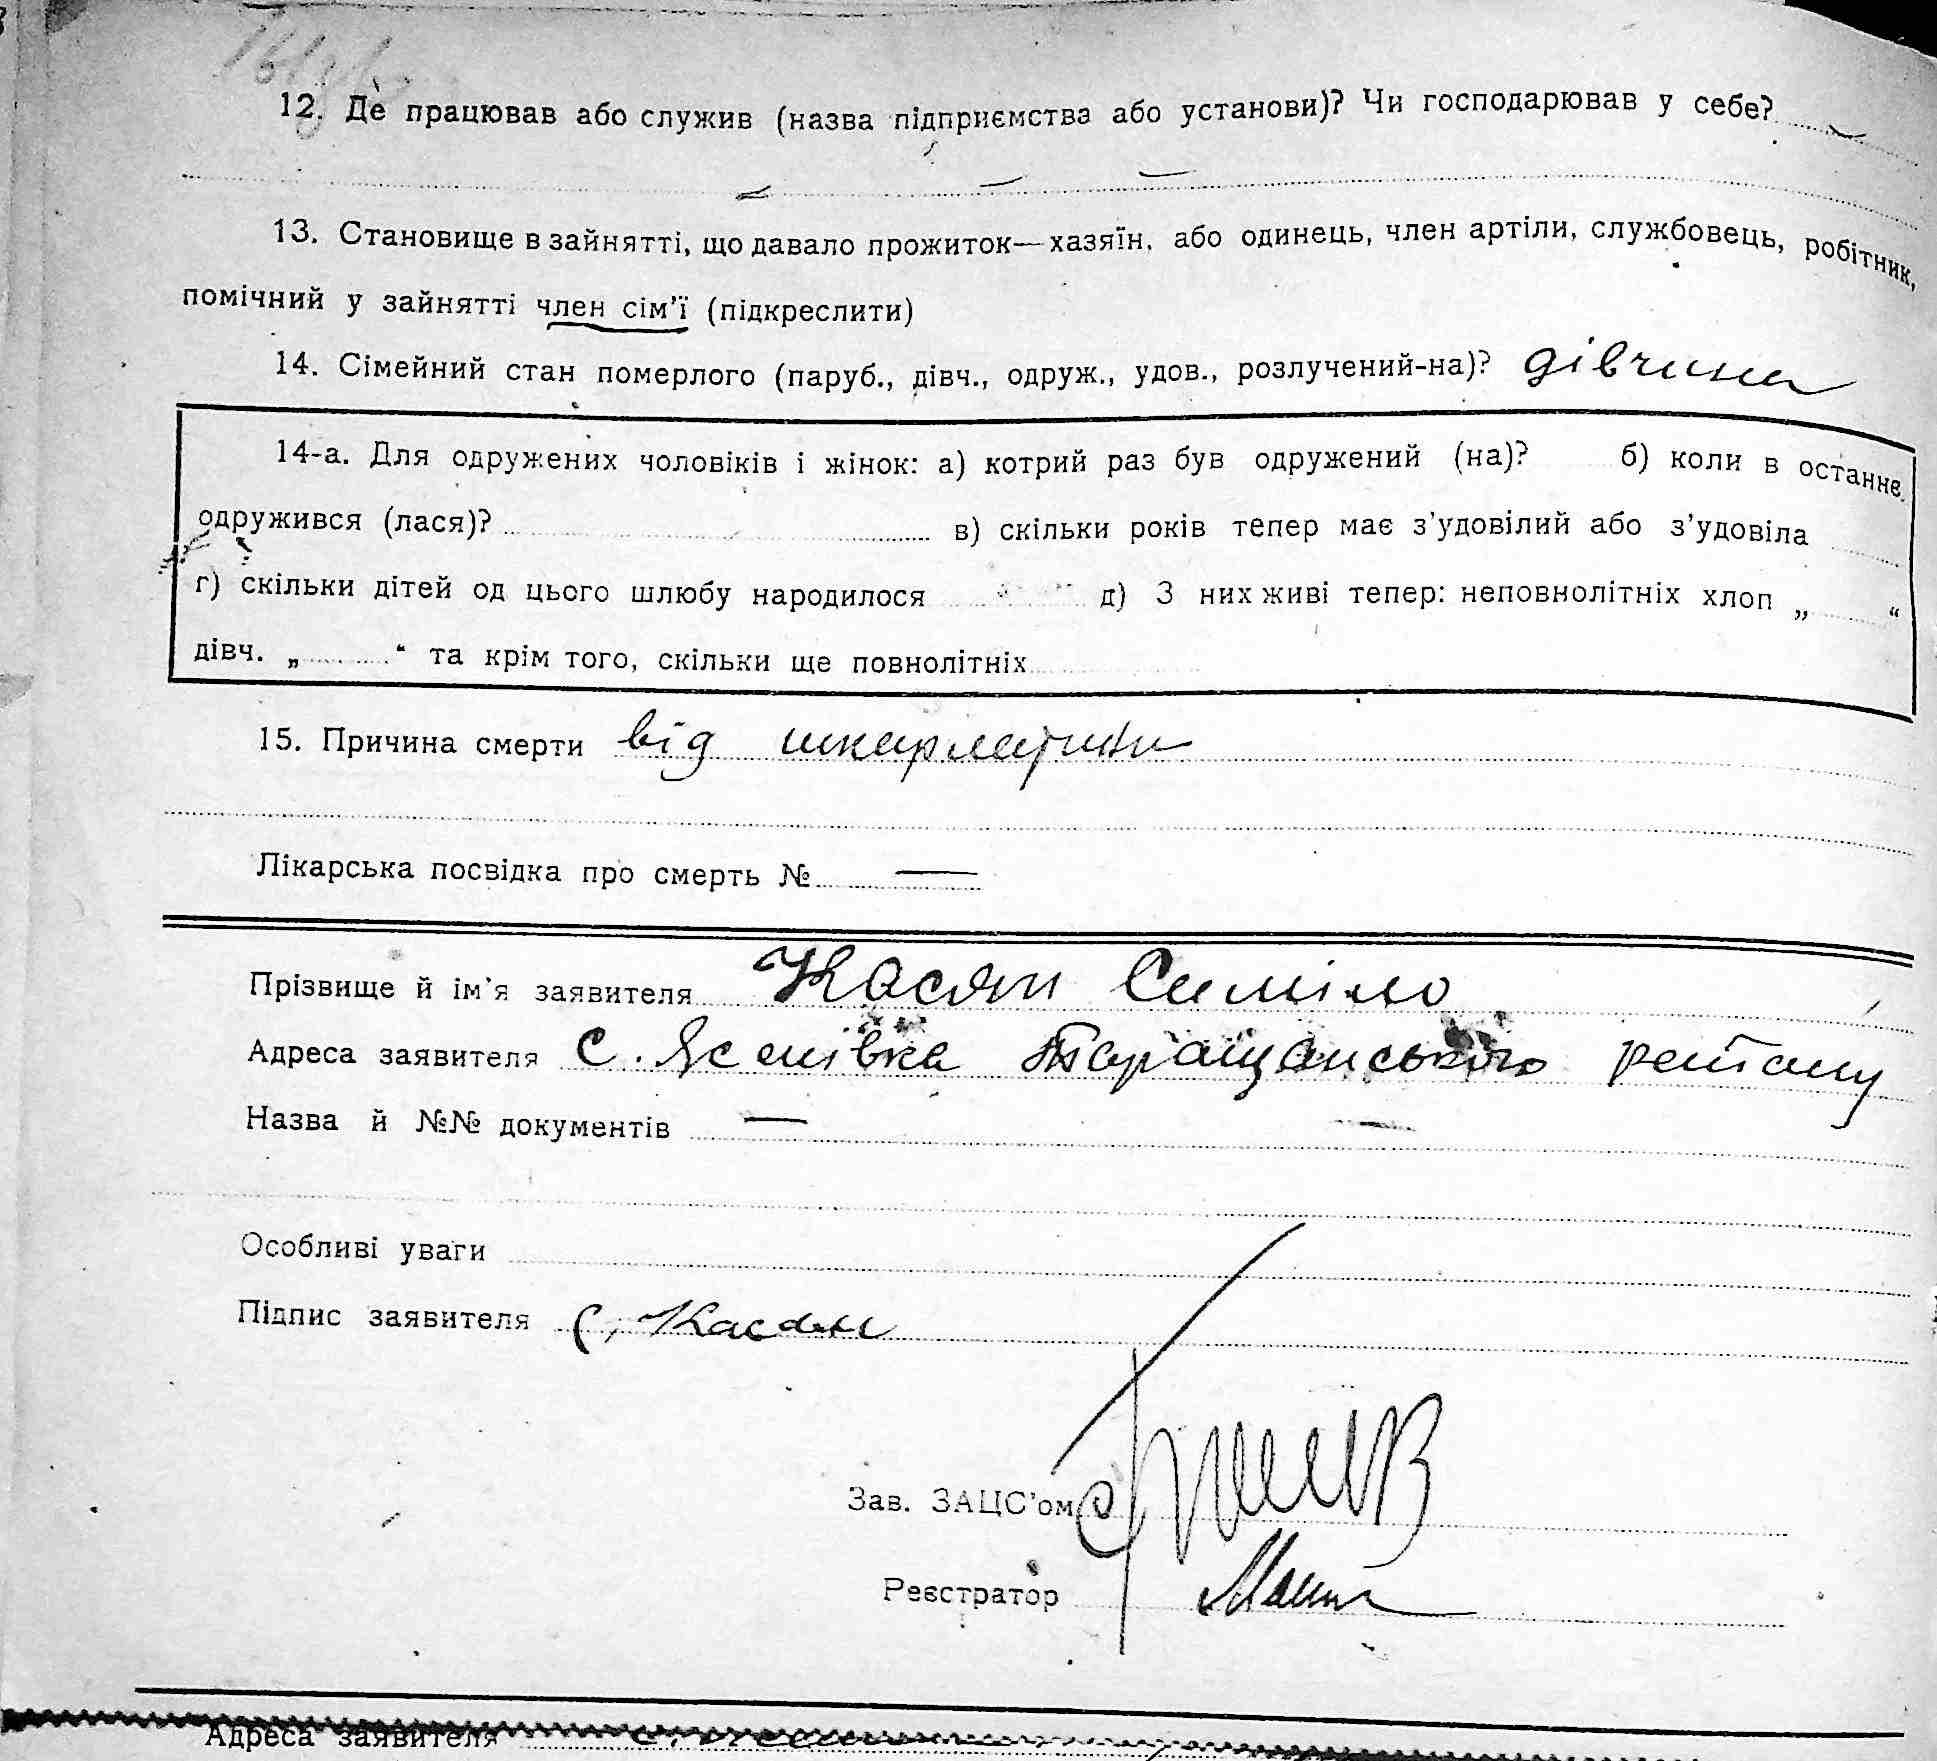 12. Де працював або служив (назва підприємства або установи)? Чи господарював у себе?
13. Становище в зайнятті, що давало прожиток—хазяїн, або одинець, член артіли, службовець, робітник,
помічний у зайнятті член сім'ї (підкреслити)
14. Сімейний стан померлого (паруб., дівч., одруж., удов., розлучений-на)? дівчина
14-а. Для одружених чоловіків і жінок: а) котрий раз був одружений (на)? б) коли в останнє
одружився (лася)? в) скільки років тепер має з'удовілий або з'удовіла
г) скільки дітей од цього шлюбу народилося д) З них живі тепер: неповнолітніх хлоп „ “
дівч. „ “ та крім того, скільки ще повнолітніх
15. Причина смерти від шкарлатини
Лікарська посвідка про смерть № —
Прізвище й ім'я заявителя Касян
Адреса заявителя с. Таращанського району
Назва й №№ документів —
Особливі уваги
Підпис заявителя С. Касян
Зав. ЗАЦС'ом
Реєстратор
Адреса заявителя